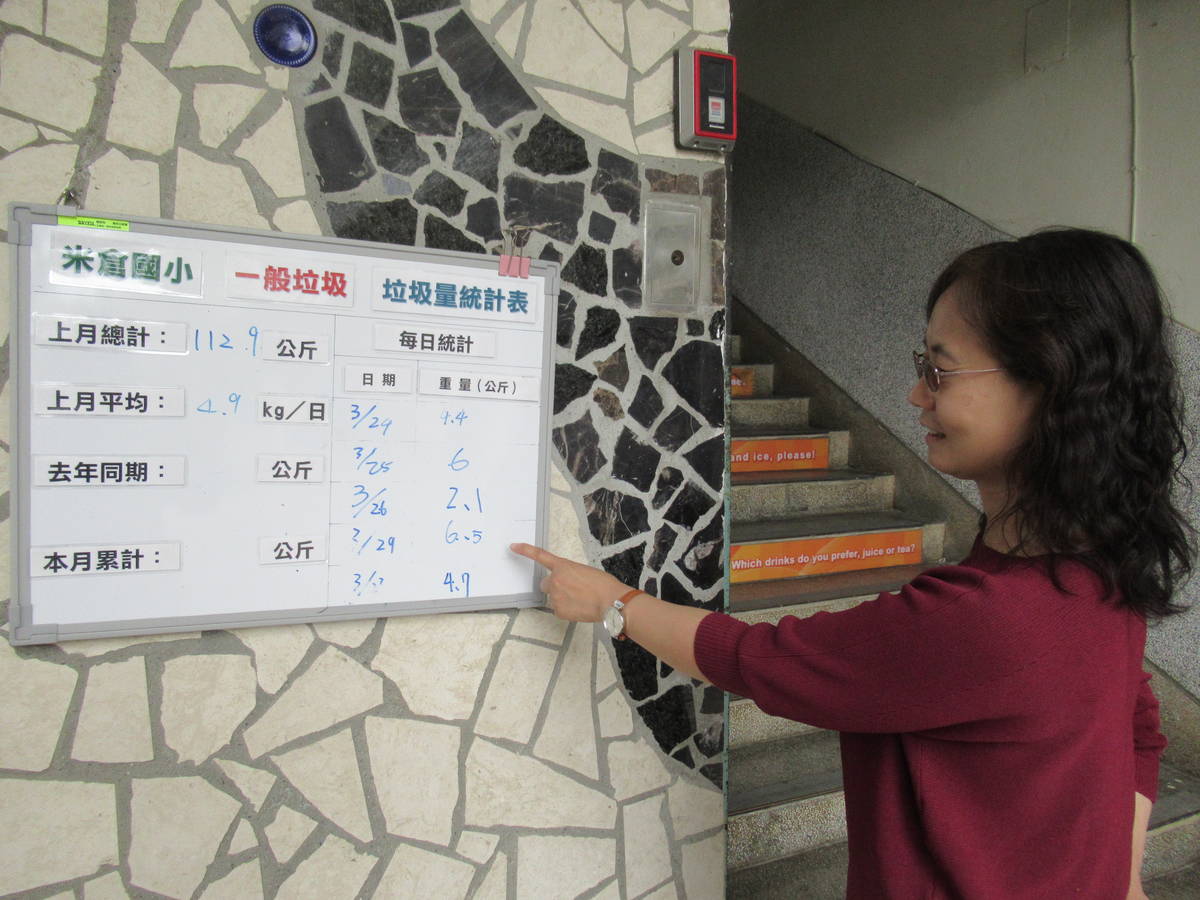 米倉國小 一般垃圾 垃圾量統計表
上月總計： 112.9 公斤
上月平均： 4.9 kg／日
去年同期： 公斤
本月累計： 公斤
每日統計
日期 重量(公斤)
3/24 4.4
3/25 6
3/26 2.1
3/29 6.5
4.7
and ice, please!
Which drinks do you prefer, juice or tea?